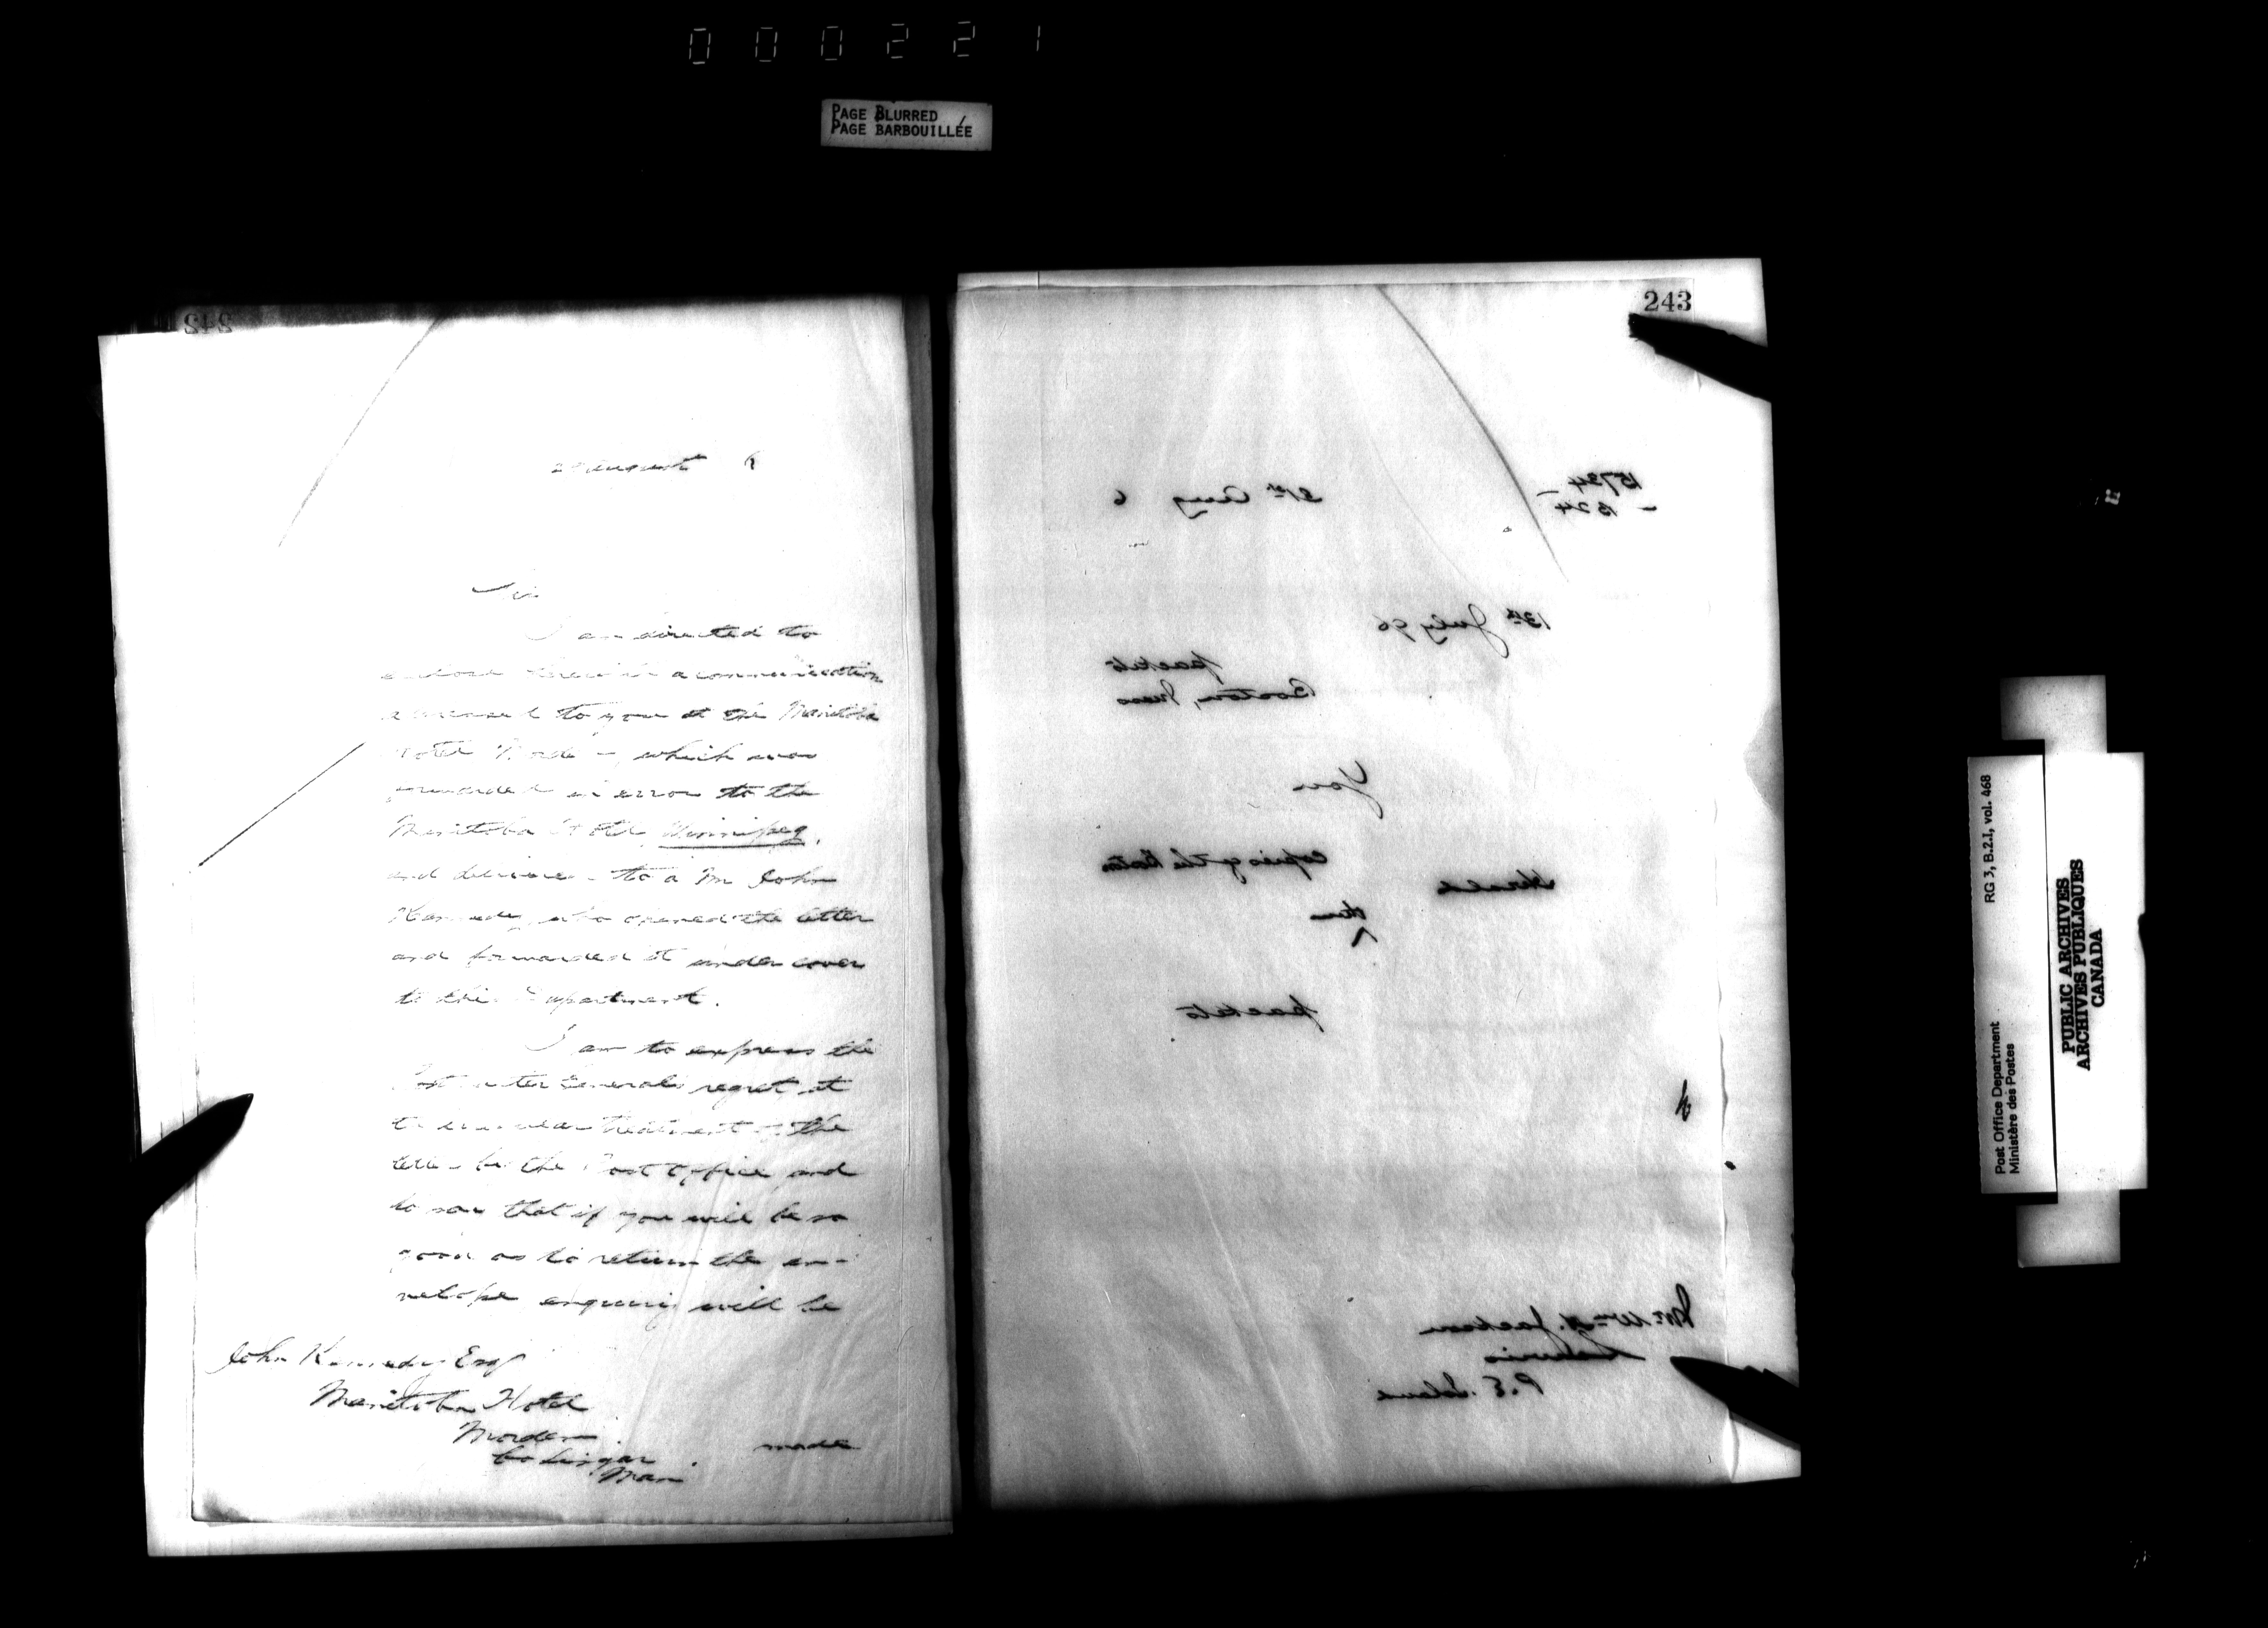 000221
PAGE BLURRED
PAGE BARBOUILLÉE
242
August 6
Sir
I am directed to
enclose herewith a communication
addressed to you at the Manitoba
Hotel Morden, which was
forwarded in error to the
Manitoba Hotel, Winnipeg,
and delivered to a Mr John
Kennedy, who opened the letter
and forwarded it under cover
to this Department.
I am to express the
Postmaster General's regret at
the treatment of the
letter by the Post Office and
to say that if you will be so
good as to return the en-
velope enquiry will be
John Kennedy Esq
Manitoba Hotel
Morden
Co Lisgar
Man
made
243
15734
B 24
21st Aug 6
13th July 96
packets
Boston, Mass
You
copies of the Boston
Herald
the
packets
Mr Wm H. Jackson
P.E. Island
RG 3, B.2.1, vol. 468
Post Office Department
Ministère des Postes
PUBLIC ARCHIVES
ARCHIVES PUBLIQUES
CANADA